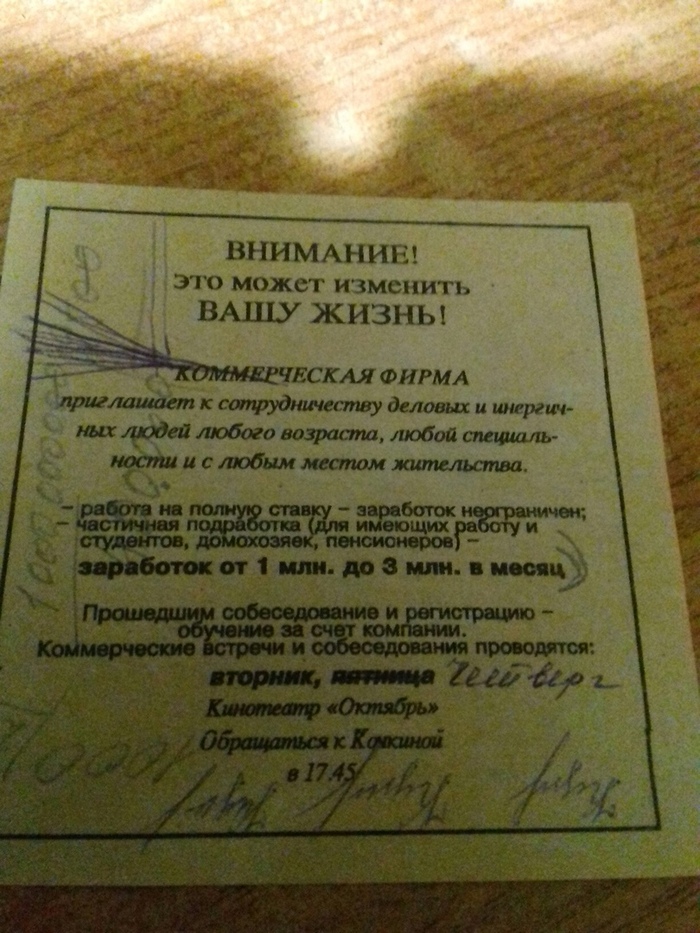 ВНИМАНИЕ!
это может изменить
ВАШУ ЖИЗНЬ!
КОММЕРЧЕСКАЯ ФИРМА
приглашает к сотрудничеству деловых и инергич-
ных людей любого возраста, любой специаль-
ности и с любым местом жительства.
– работа на полную ставку – заработок неограничен;
– частичная подработка (для имеющих работу и
студентов, домохозяек, пенсионеров) –
заработок от 1 млн. до 3 млн. в месяц
Прошедшим собеседование и регистрацию –
обучение за счет компании.
Коммерческие встречи и собеседования проводятся:
вторник, пятница Четверг
Кинотеатр «Октябрь»
Обращаться к
в 17.45